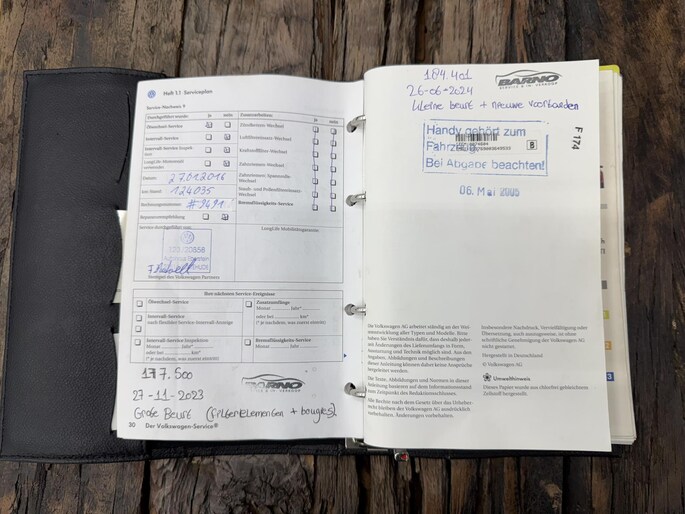 Heft 1.1 Serviceplan
Service-Nachweis 9
Durchgeführt wurde: ja nein
Ölwechsel-Service
Intervall-Service
LongLife-Motorenöl
verwendet
Datum: 27.01.2016
km-Stand: 124035
Rechnungsnummer: #9491
Reparaturempfehlung
Service durchgeführt von:
Stempel des Volkswagen Partners
Zusatzarbeiten: ja nein
Zündkerzen-Wechsel
Luftfiltereinsatz-Wechsel
Kraftstofffilter-Wechsel
Zahnriemen-Wechsel
Zahnriemen-Spannrolle-
Wechsel
Staub- und Pollenfiltereinsatz-
Wechsel
Bremsflüssigkeits-Service
LongLife Mobilitätsgarantie
Ihre nächsten Service-Ereignisse
Ölwechsel-Service
Intervall-Service
nach flexibler Service-Intervall-Anzeige
Intervall-Service Inspektion
Monat Jahr*
oder bei km*
(* je nachdem, was zuerst eintritt)
Zusatzumfänge
Monat Jahr*
oder bei km*
(* je nachdem, was zuerst eintritt)
Bremsflüssigkeits-Service
Monat Jahr
177.500
BARNO
27-11-2023
Grote Beurt (filterelementen + bougies)
30 Der Volkswagen-Service®
184.401
BARNO
26-06-2024
Kleine beurt + nieuwe voorbanden
Handy gehört zum
Fahrzeug
B
Bei Abgabe beachten!
F 174
06. Mai 2005
Die Volkswagen AG arbeitet ständig an der Wei-
terentwicklung aller Typen und Modelle. Bitte
haben Sie Verständnis dafür, dass deshalb jeder-
zeit Änderungen des Lieferumfangs in Form,
Ausstattung und Technik möglich sind. Aus den
Angaben, Abbildungen und Beschreibungen
dieser Anleitung können daher keine Ansprüche
hergeleitet werden.
Die Texte, Abbildungen und Normen in dieser
Anleitung basieren auf dem Informationsstand
zum Zeitpunkt des Redaktionsschlusses.
Alle Rechte nach dem Gesetz über das Urheber-
recht bleiben der Volkswagen AG ausdrücklich
vorbehalten. Änderungen vorbehalten.
Insbesondere Nachdruck, Vervielfältigung oder
Übersetzung, auch auszugsweise, ist ohne
schriftliche Genehmigung der Volkswagen AG
nicht gestattet.
Hergestellt in Deutschland
© Volkswagen AG
Umwelthinweis
Dieses Papier wurde aus chlorfrei gebleichtem
Zellstoff hergestellt.
3